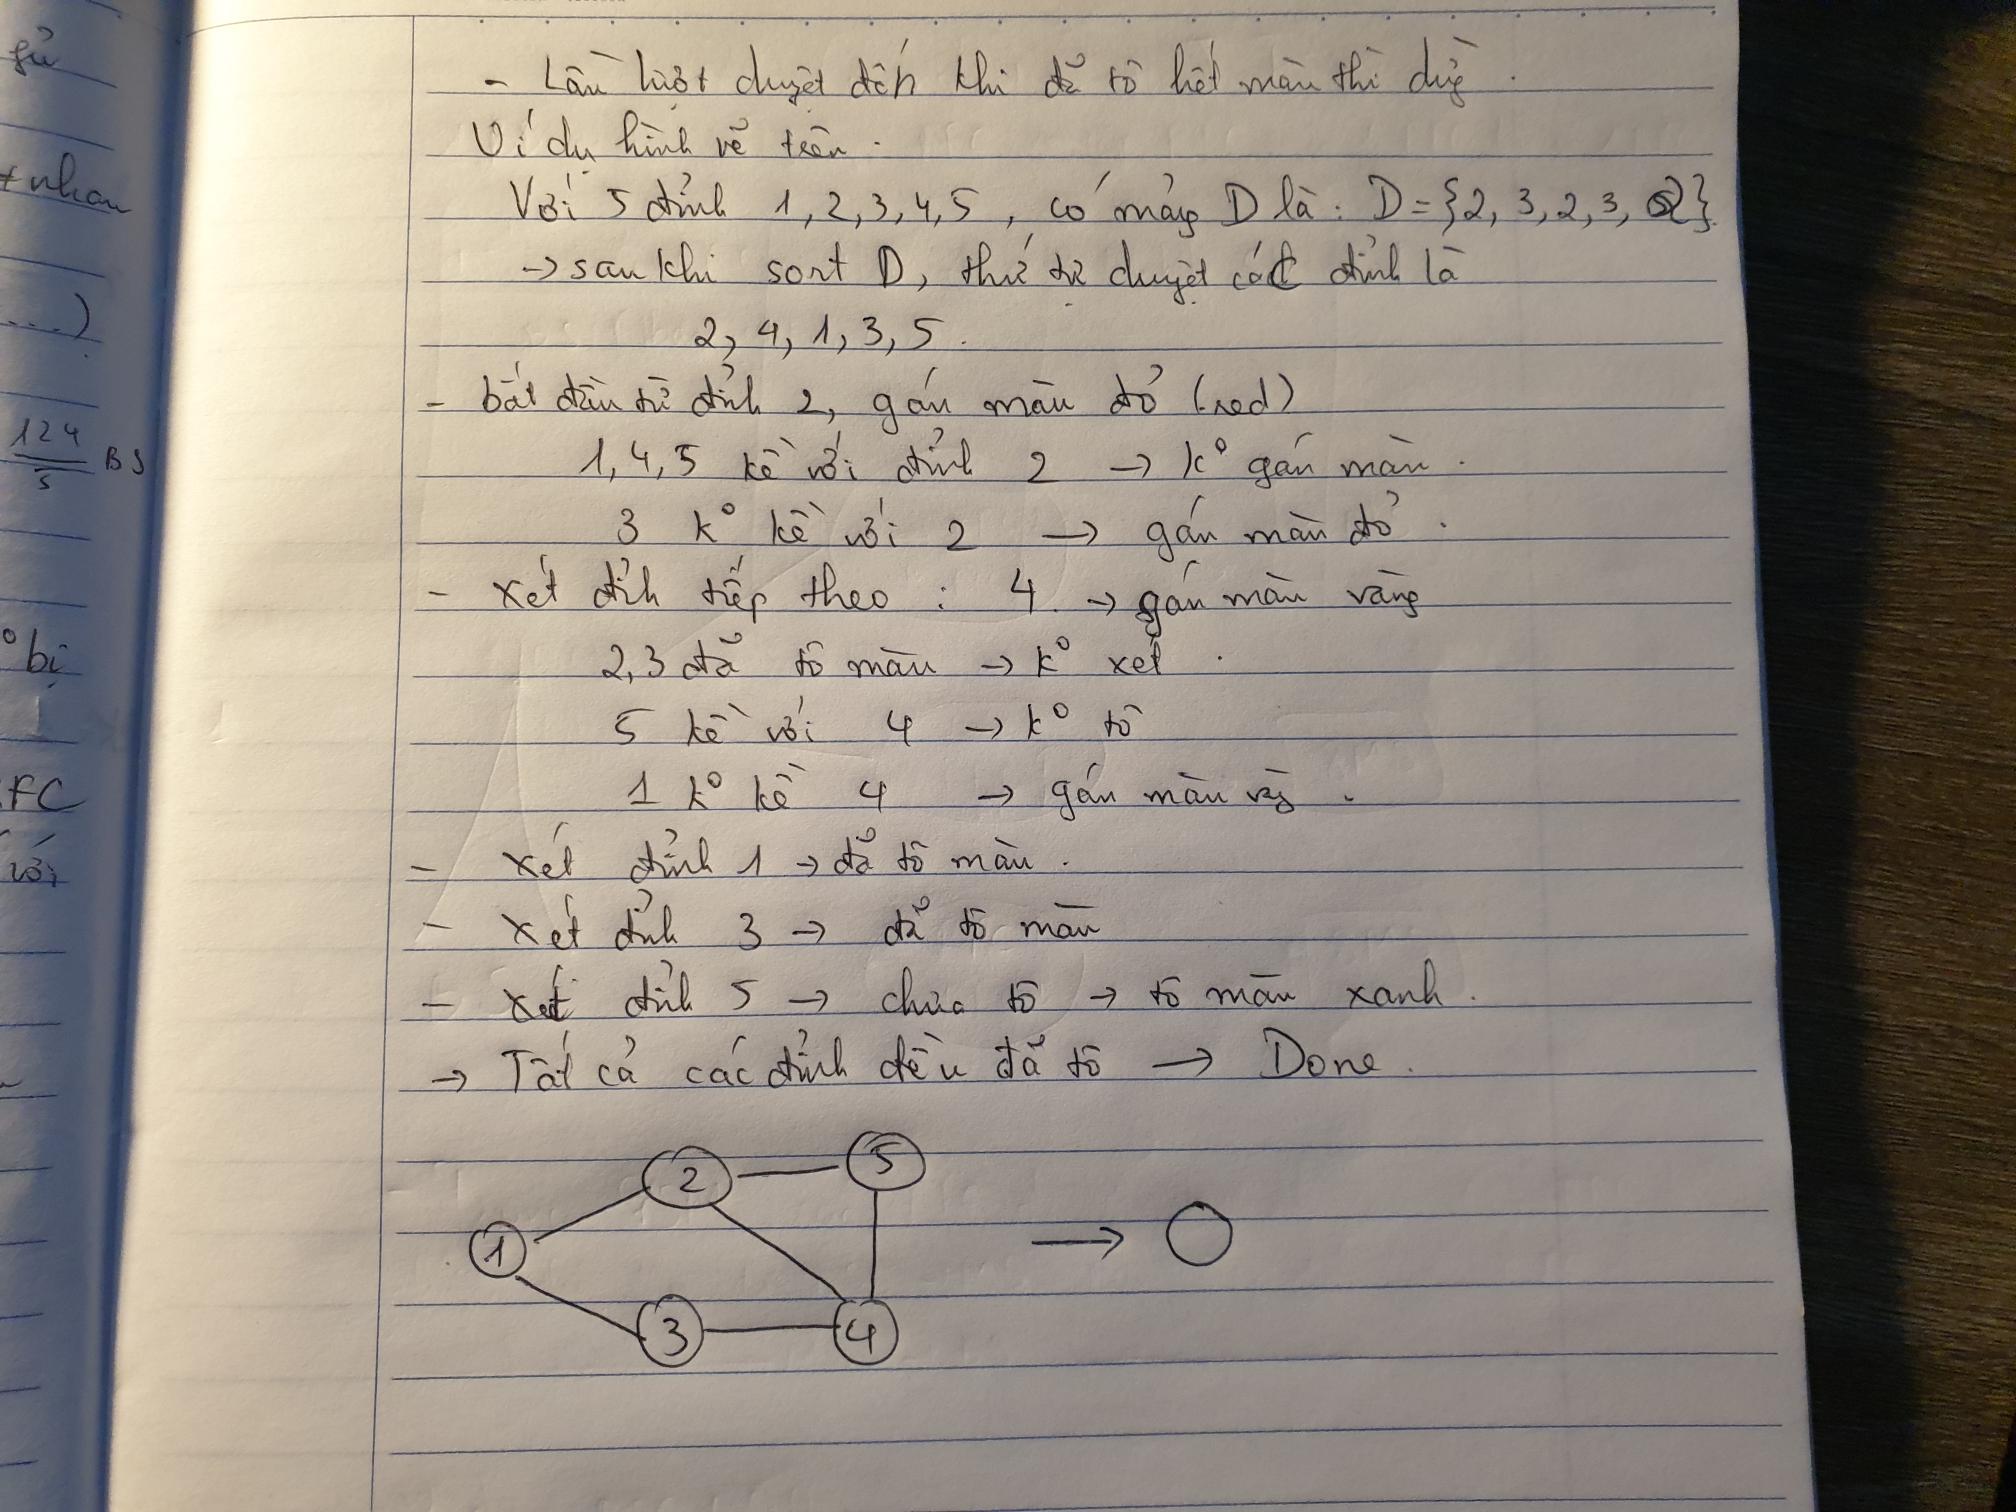 sử
+ nhau
...)
124
5
BS
° bị
FC
với
- Lần lượt duyệt đến khi đã tô hết màu thì dừg.
Ví dụ hình vẽ trên.
Với 5 đỉnh 1, 2, 3, 4, 5, có mảg D là: D = {2, 3, 2, 3, 2}
→ sau khi sort D, thứ tự duyệt các đỉnh là
2, 4, 1, 3, 5.
- bắt đầu từ đỉnh 2, gán màu đỏ (red)
1, 4, 5 kề với đỉnh 2 → k° gán màu.
3 k° kề với 2 → gán màu đỏ.
- xét đỉnh tiếp theo: 4. → gán màu vàng
2, 3 đã tô màu → k° xét.
5 kề với 4 → k° tô
1 k° kề 4 → gán màu vàg.
- xét đỉnh 1 → đã tô màu.
- xét đỉnh 3 → đã tô màu
- xét đỉnh 5 → chưa tô → tô màu xanh.
→ Tất cả các đỉnh đều đã tô → Done.
2 5
1
3 4